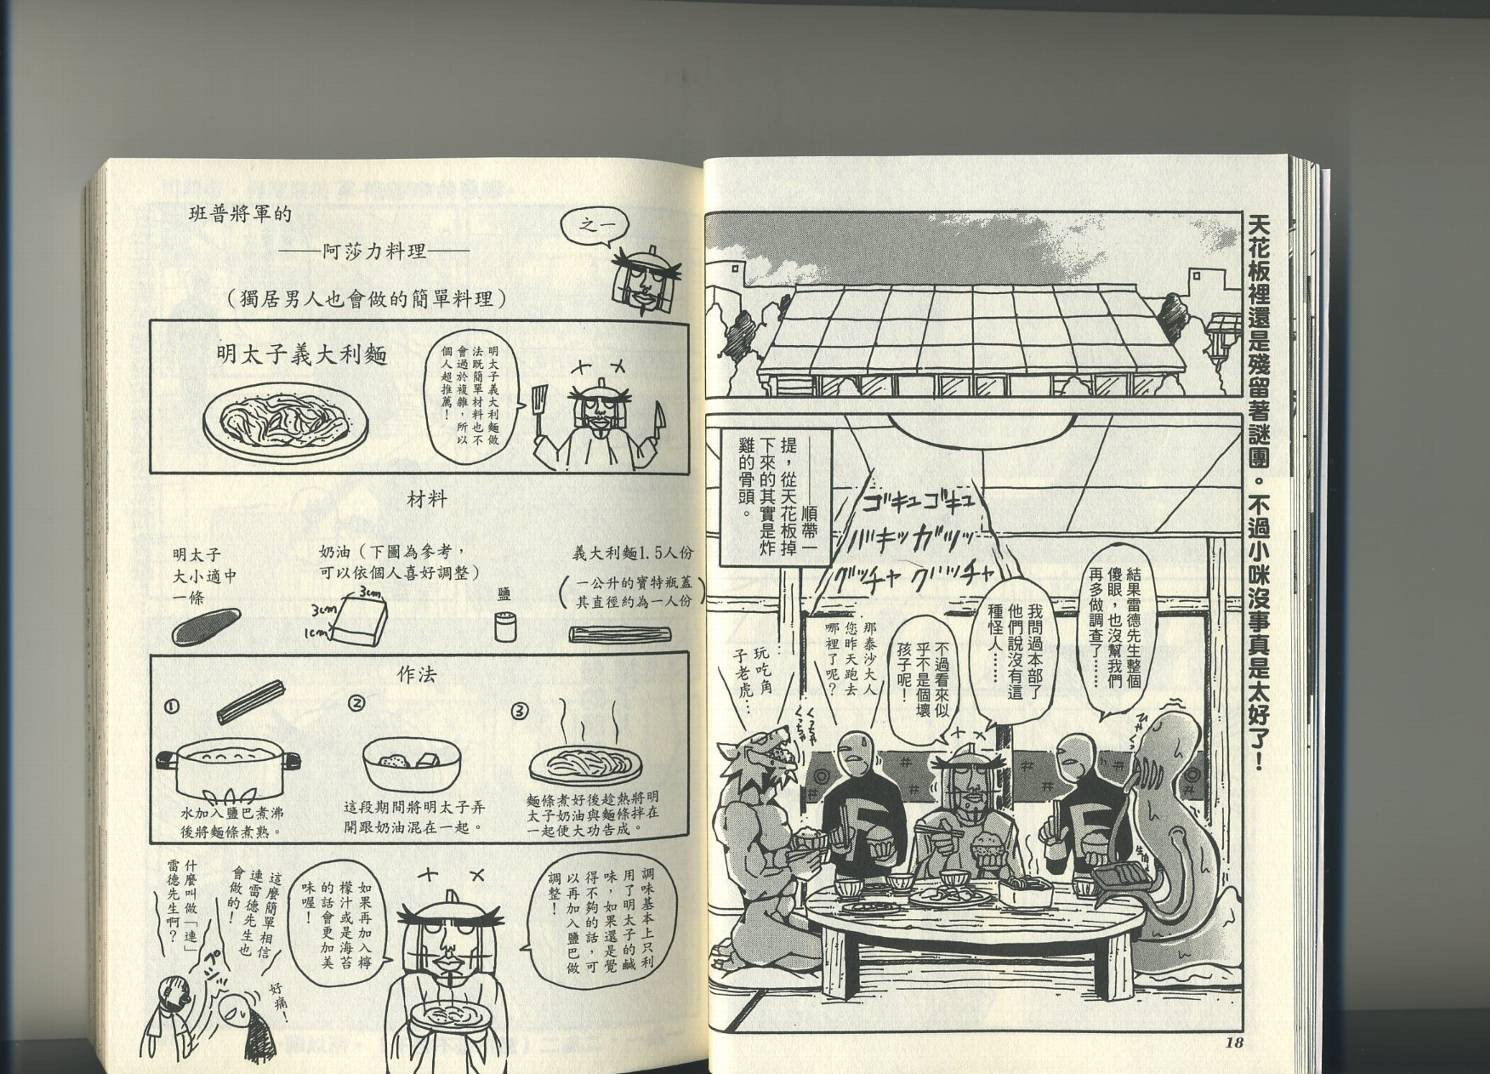 天花板裡還是殘留著謎團。不過小咪沒事真是太好了！
——順帶一
提，從天花板掉
下來的其實是炸
雞的骨頭。
ゴキュゴキュ
バキッガツッ
グッチャ クッチャ
結果雷德先生整個
傻眼，也沒幫我們
再多做調查了……
我問過本部了
他們說沒有這
種怪人……
不過看來似
乎不是個壞
孩子呢！
那泰沙大人
您昨天跑去
哪裡了呢？
玩吃角
子老虎…
くっちゃ
くっちゃ
18
班普將軍的
——阿莎力料理——
（獨居男人也會做的簡單料理）
之一
明太子義大利麵
明太子義大利麵做
法既簡單材料也不
會過於複雜，所以
個人超推薦！
材料
明太子
大小適中
一條
奶油（下圖為參考，
可以依個人喜好調整）
3cm
3cm
1cm
鹽
義大利麵1.5人份
（一公升的寶特瓶蓋
其直徑約為一人份）
作法
①
水加入鹽巴煮沸
後將麵條煮熟。
②
這段期間將明太子弄
開跟奶油混在一起。
③
麵條煮好後趁熱將明
太子奶油與麵條拌在
一起便大功告成。
調味基本上只利
用了明太子的鹹
味，如果還是覺
得不夠的話，可
以再加入鹽巴做
調整！
如果再加入檸
檬汁或是海苔
的話會更加美
味喔！
這麼簡單相信
連雷德先生也
會做的！
什麼叫做「連」
雷德先生啊？
好痛！